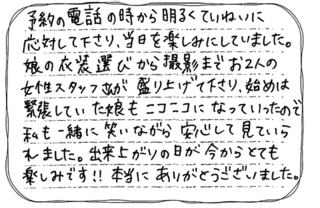 予約の電話の時から明るくていねいに
応対して下さり、当日を楽しみにしていました。
娘の衣装選びから撮影までお2人の
女性スタッフさんが盛り上げて下さり、始めは
緊張していた娘もニコニコになっていったので
私も一緒に笑いながら安心して見ていら
れました。出来上がりの日が今からとても
楽しみです!!本当にありがとうございました。